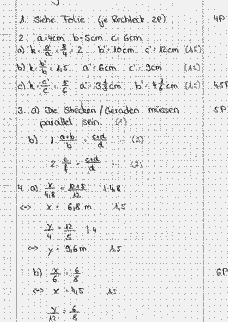 1. Siehe Folie (je Rechteck 2P) 4P
2. a=4cm b=5cm c=6cm
a) k = a'/a = 8/4 = 2 b' = 10cm c' = 12cm (1,5)
b) k = b'/b = 1,5 a' = 6cm c' = 9cm (1,5)
c) k = c'/c = 5/6 a' = 3 1/3 cm b' = 4 1/6 cm (1,5) 4,5P
3. a) Die Strecken/Geraden müssen 5P
parallel sein. (1)
b) 1. (a+b)/b = (c+d)/d (2)
2. = (c+d)/d (2)
4. a) x/4,8 = /12 | · 4,8
<=> x = 6,8 m 1,5
y/ = 12/5 | · 4
<=> y = 9,6 m 1,5
b) x/6 = 6/8 6P
<=> x = 4,5 1,5
= 6/8